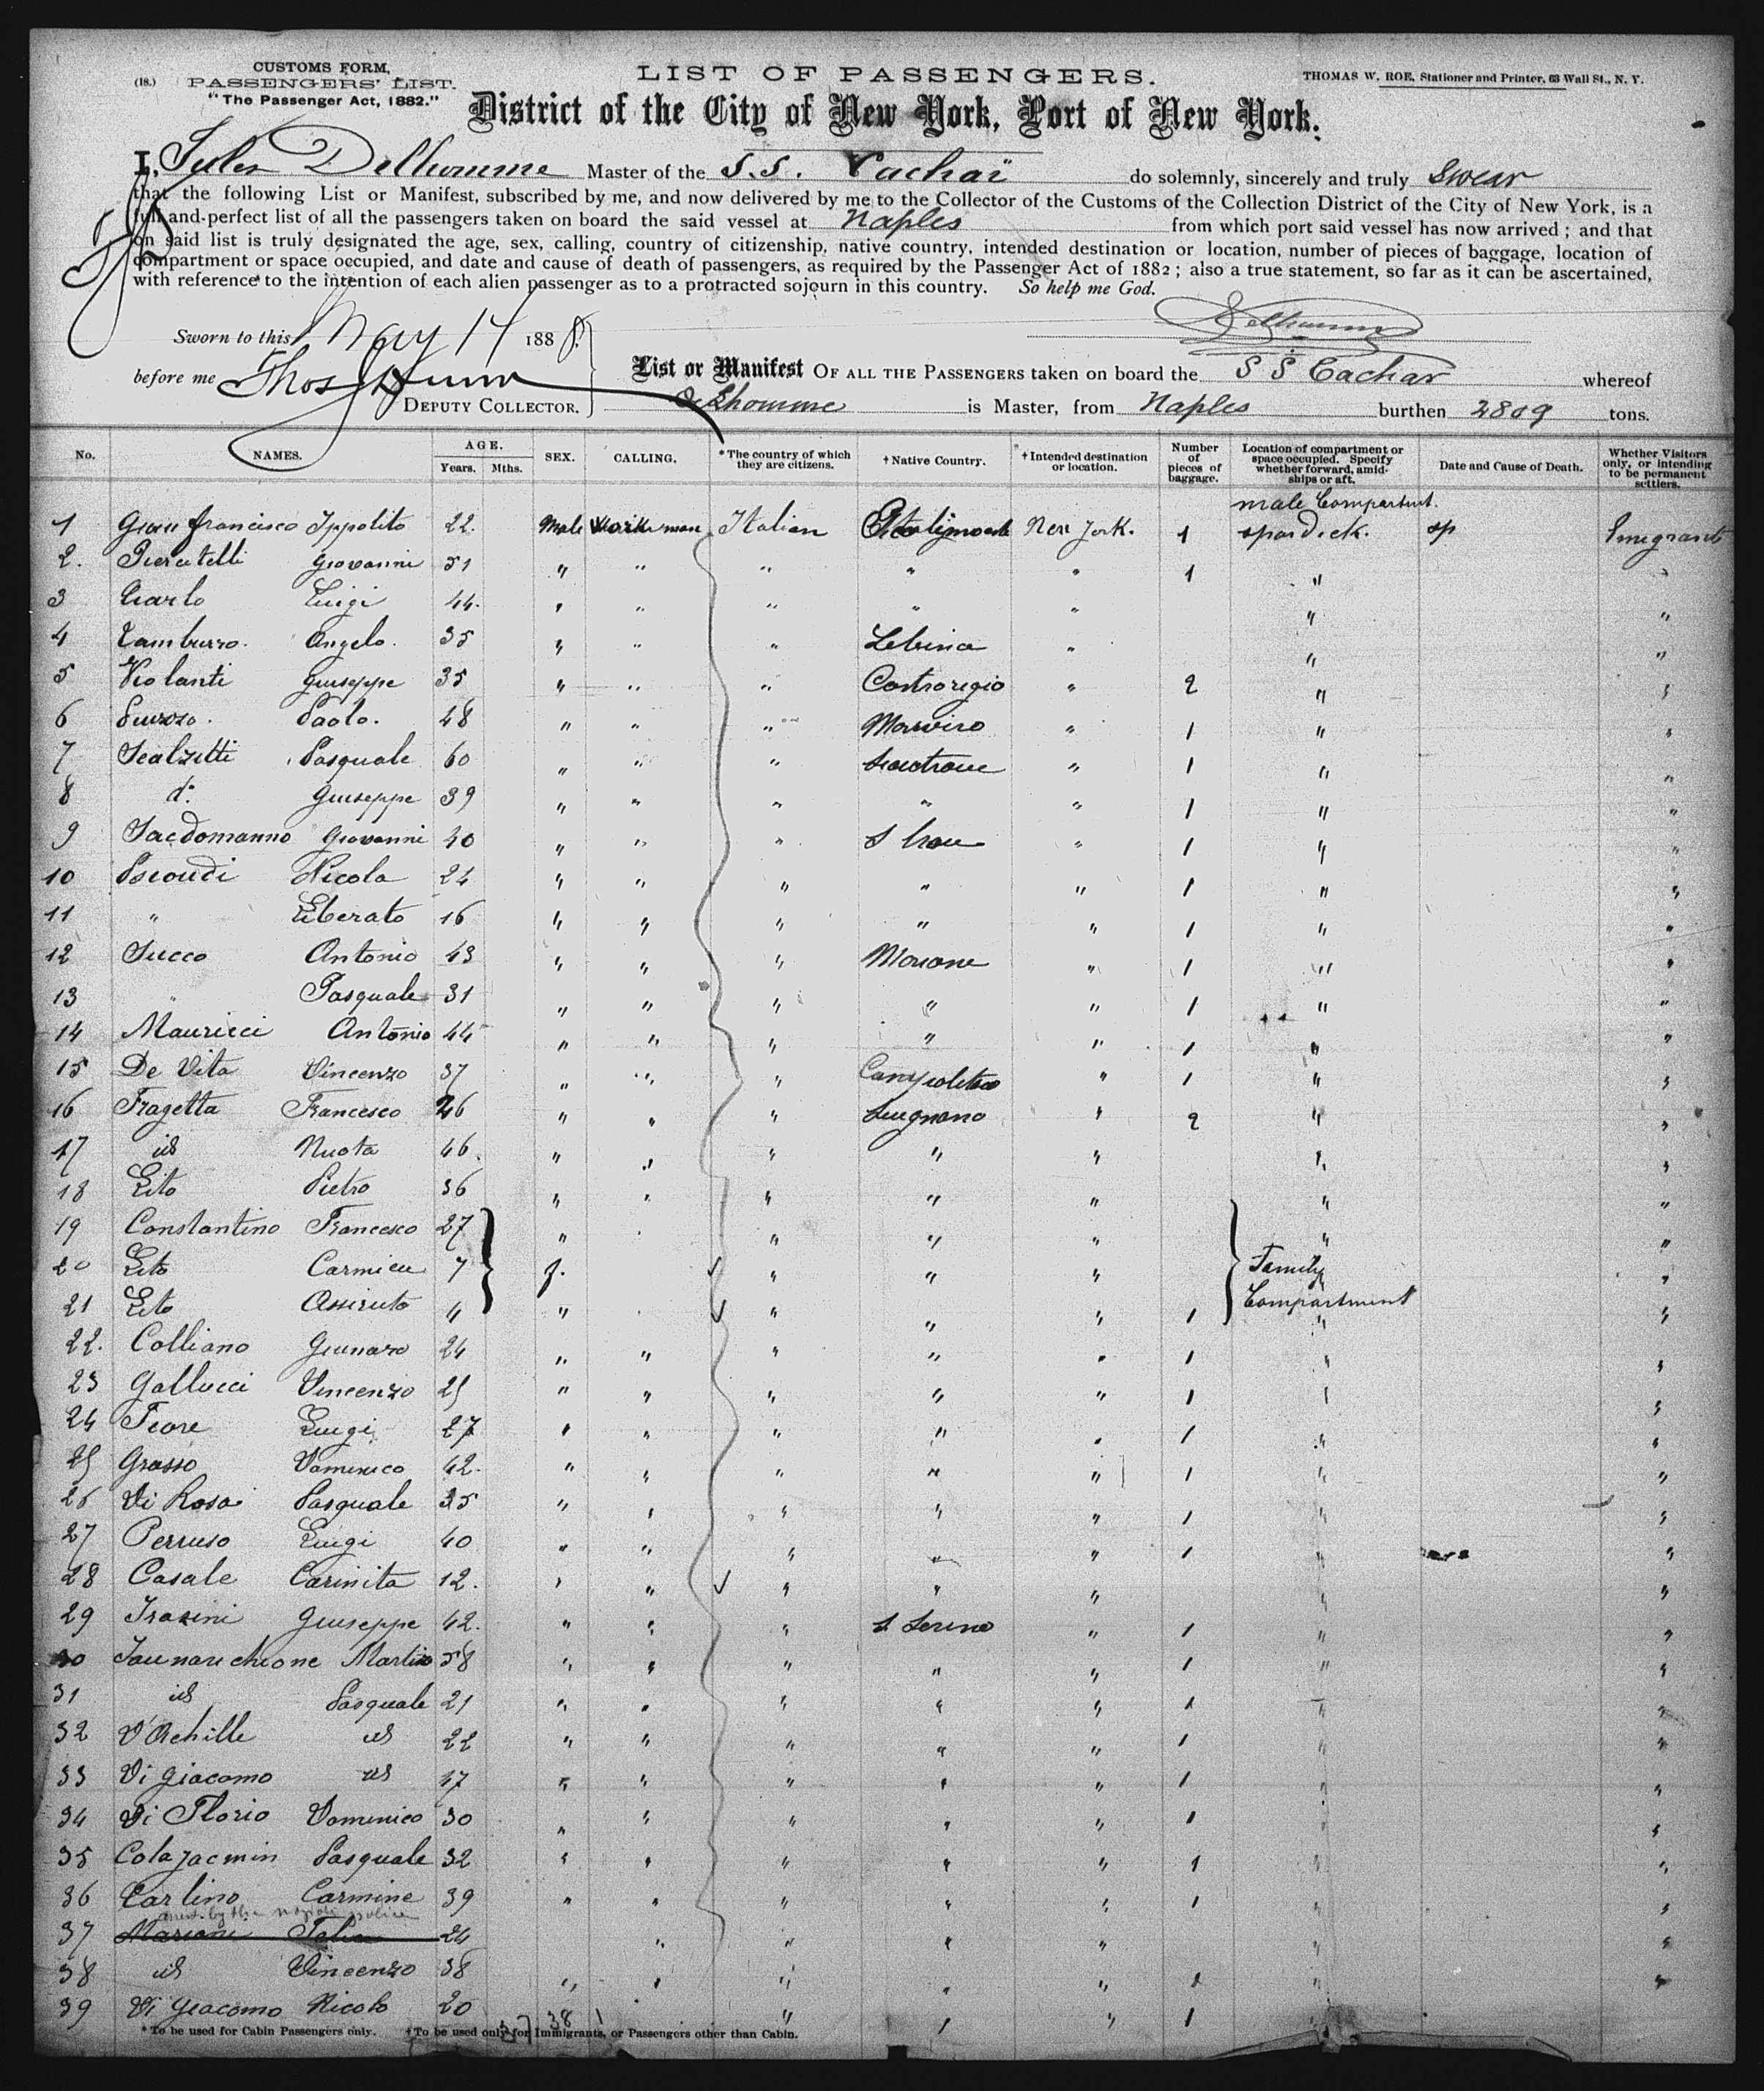 CUSTOMS FORM,
(18.) PASSENGERS' LIST.
"The Passenger Act, 1882."
LIST OF PASSENGERS.
THOMAS W. ROE, Stationer and Printer, 63 Wall St., N. Y.
District of the City of New York, Port of New York.
I, Jules Delhomme Master of the S.S. Cachar do solemnly, sincerely and truly Swear
that the following List or Manifest, subscribed by me, and now delivered by me to the Collector of the Customs of the Collection District of the City of New York, is a
full and perfect list of all the passengers taken on board the said vessel at Naples from which port said vessel has now arrived ; and that
on said list is truly designated the age, sex, calling, country of citizenship, native country, intended destination or location, number of pieces of baggage, location of
compartment or space occupied, and date and cause of death of passengers, as required by the Passenger Act of 1882 ; also a true statement, so far as it can be ascertained,
with reference to the intention of each alien passenger as to a protracted sojourn in this country. So help me God.
Delhomme
Sworn to this May 14 1888.
before me Thos
DEPUTY COLLECTOR.
List or Manifest OF ALL THE PASSENGERS taken on board the S S Cachar whereof
Delhomme is Master, from Naples burthen 2809 tons.
No. NAMES. AGE. Years. Mths. SEX. CALLING. *The country of which they are citizens. †Native Country. †Intended destination or location. Number of pieces of baggage. Location of compartment or space occupied. Specify whether forward, amidships or aft. Date and Cause of Death. Whether Visitors only, or intending to be permanent settlers.
male Compartment.
1 Gian francisco Ippolito 22. Male Workman Italian New York. 1 spardeck. Emigrants
2. Giovanni 51 " " " " " 1 "
3 Carlo Luigi 44. " " " " " " "
4 Tamburro. Angelo. 35 " " " " " "
5 Violanti Giuseppe 35 " " " " 2 " "
6 Paolo. 48 " " " " 1 " "
7 Scalzitti Pasquale 60 " " " " 1 " "
8 d: Giuseppe 39 " " " " " 1 " "
9 Sacdomanno Giovanni 40 " " " " 1 " "
10 Nicola 24 " " " " " 1 " "
11 " Liberato 16 " " " " " 1 " "
12 Succo Antonio 43 " " " " 1 " "
13 " Pasquale 31 " " " " " 1 " "
14 Mauricci Antonio 44 " " " " " 1 " "
15 De Vita Vincenzo 37 " " " " 1 " "
16 Fragetta Francesco 26 " " " " 2 " "
17 id Nuota 46. " " " " " " "
18 Lito Pietro 36 " " " " " " "
19 Constantino Francesco 27 " " " " " "
20 Lito 7 f. " " " Family "
21 Lito 4 " " " " 1 Compartment "
22. Colliano Gennaro 24 " " " " " 1 " "
23 Gallucci Vincenzo 25 " " " " " 1 " "
24 Fiore Luigi 27 " " " " " 1 " "
25 Grasso Domenico 42. " " " " " 1 " "
26 Di Rosa Pasquale 35 " " " " " 1 " "
27 Perruso Luigi 40 " " " " " 1 " "
28 Casale Carinita 12. " " " " " " "
29 Giuseppe 42. " " " " 1 " "
30 Martino 58 " " " " " 1 " "
31 id Pasquale 21 " " " " " 1 " "
32 D'Achille id 22 " " " " " 1 " "
33 Di Giacomo id 17 " " " " " 1 " "
34 Di Florio Domenico 30 " " " " " 1 " "
35 Colajacmin Pasquale 32 " " " " " 1 " "
36 Carlino Carmine 39 " " " " " 1 " "
by the police
37 Mariani 24 " " " " " "
38 id Vincenzo 38 " " " " " 1 " "
39 Di Giacomo Nicolo 20 " " " 1
*To be used for Cabin Passengers only. †To be used only for Immigrants, or Passengers other than Cabin.
37 38 1